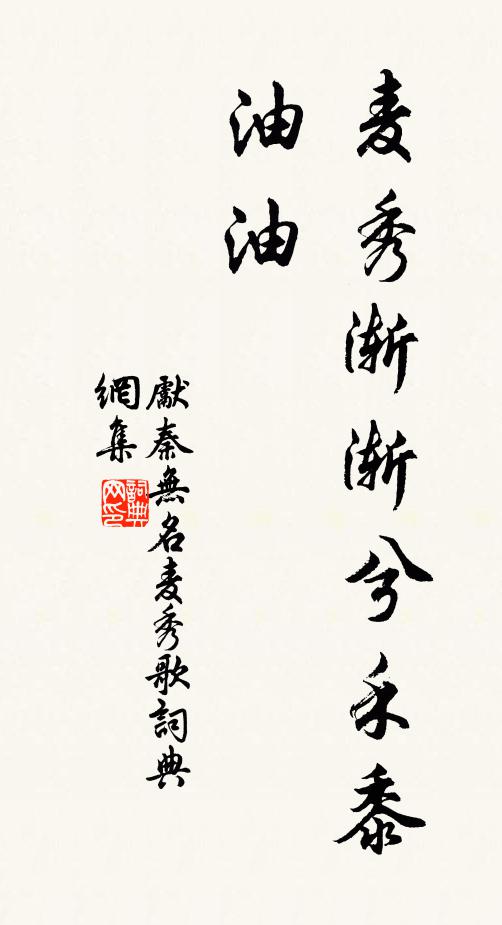 麦秀渐渐兮禾黍
油油
獻秦無名麦秀歌詞典
網集
詞典
网印